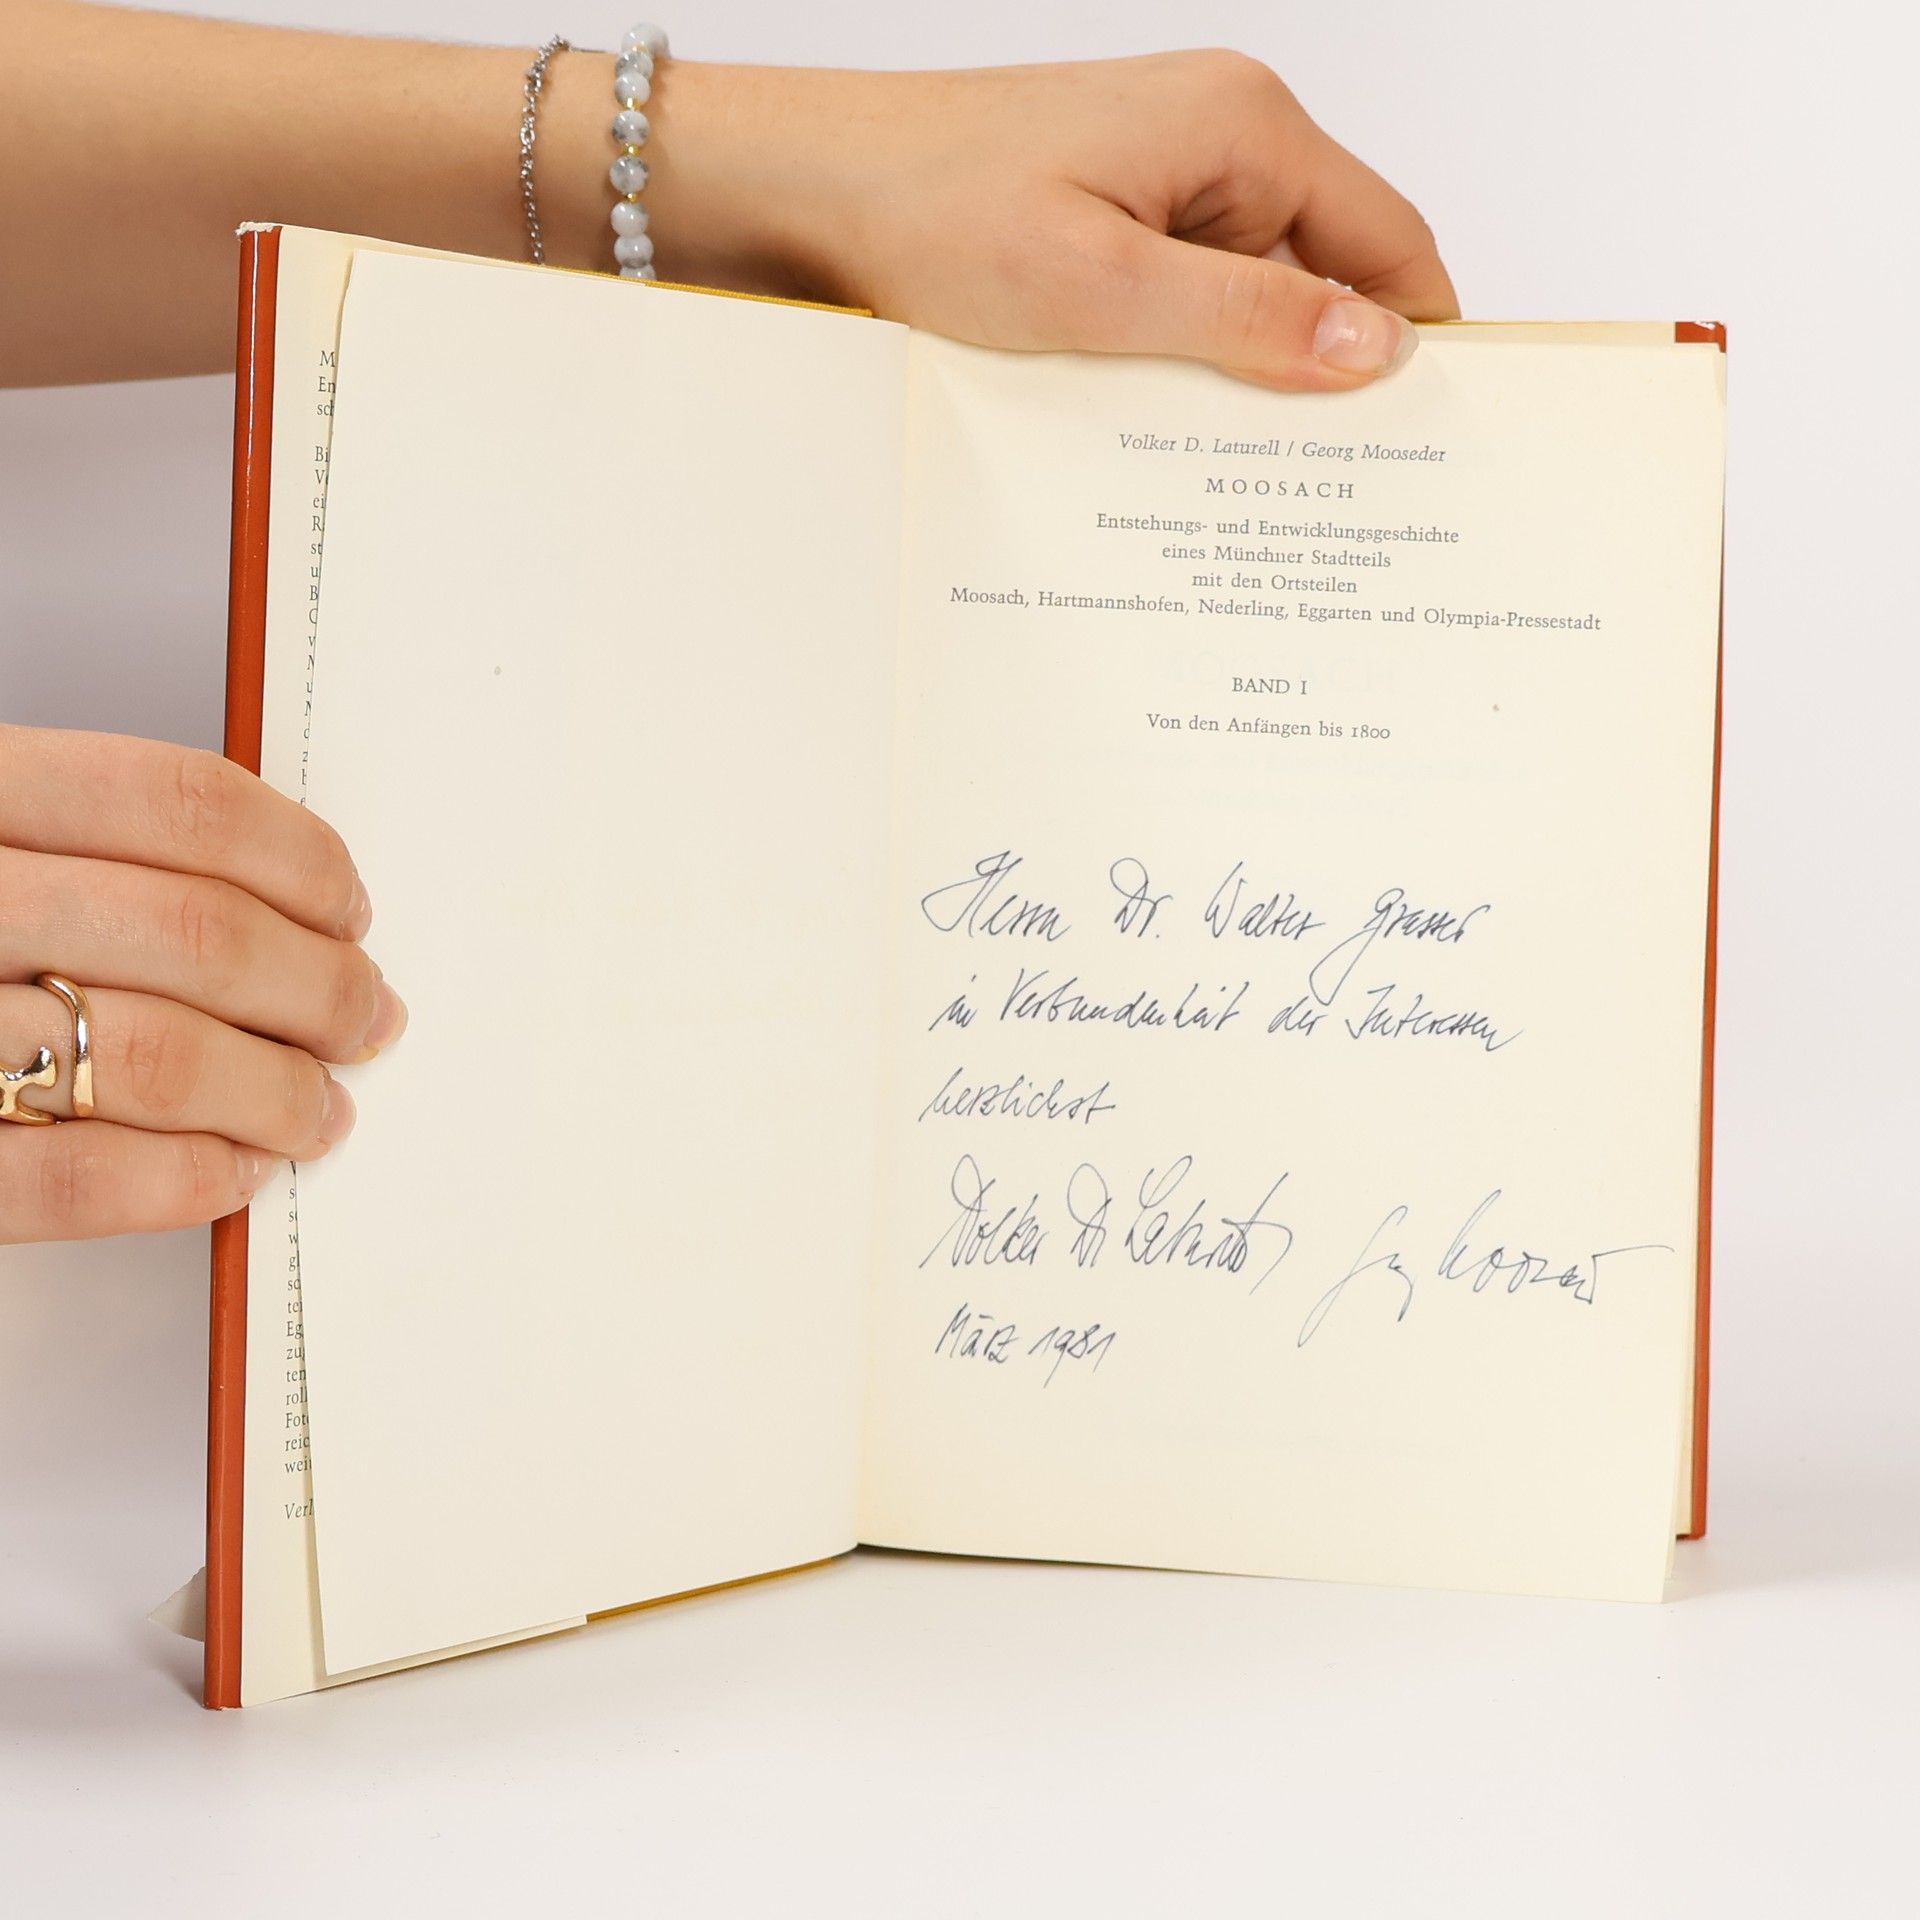 Volker D. Laturell / Georg Mooseder
MOOSACH
Entstehungs- und Entwicklungsgeschichte
eines Münchner Stadtteils
mit den Ortsteilen
Moosach, Hartmannshofen, Nederling, Eggarten und Olympia-Pressestadt
BAND I
Von den Anfängen bis 1800
Herrn Dr. Walter Grasser
in Verbundenheit der Interessen
herzlichst
Volker D. Laturell Georg Mooseder
März 1981